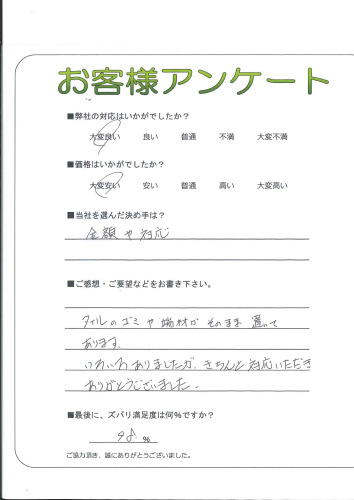 お客様アンケート
■弊社の対応はいかがでしたか？
大変良い 良い 普通 不満 大変不満
■価格はいかがでしたか？
大変安い 安い 普通 高い 大変高い
■当社を選んだ決め手は？
金額や対応
■ご感想・ご要望などをお書き下さい。
タイルのゴミや端材がそのまま置いて
あります。
いろいろありましたが、きちんと対応いただき
ありがとうございました。
■最後に、ズバリ満足度は何%ですか？
98 %
ご協力頂き、誠にありがとうございました。